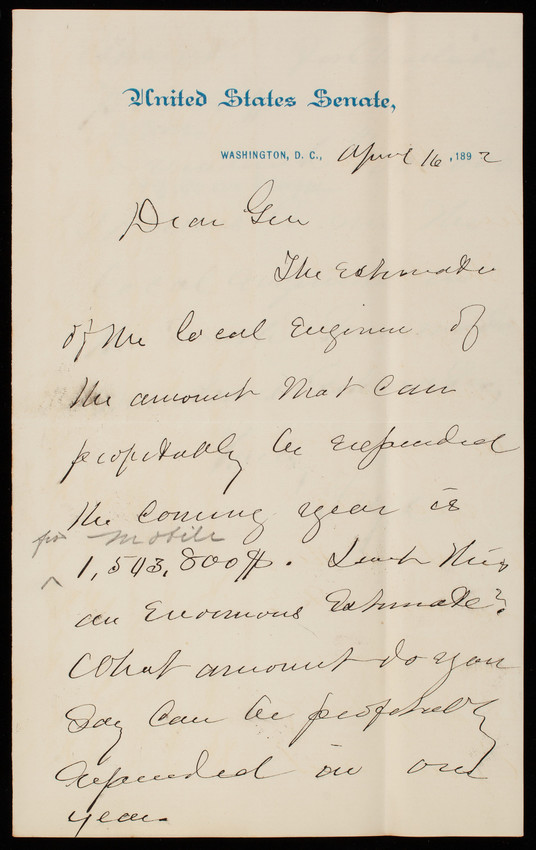 United States Senate,
WASHINGTON, D. C., April 16, 1892
Dear Gen
The Estimate
of the local Engineer of
the amount that can
profitably be expended
the coming year is
for Mobile
^ 1,543,800$. Isn't this
an Enormous Estimate?
What amount do you
Say can be profitably
Expended in one
year.